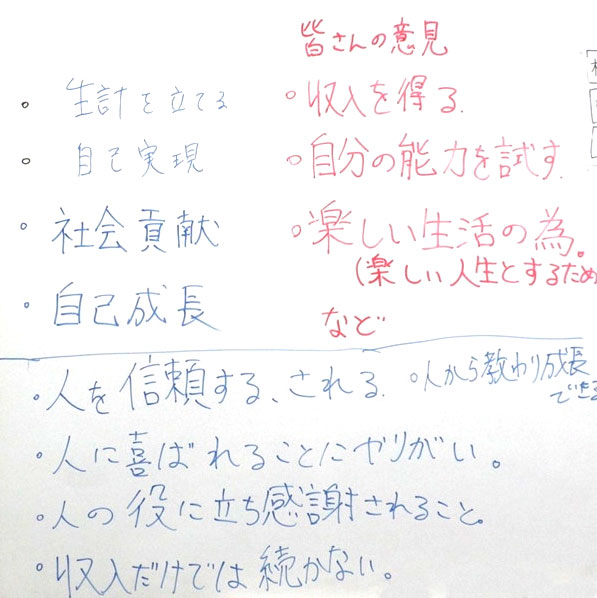 ・生計を立てる
・自己実現
・社会貢献
・自己成長
皆さんの意見
・収入を得る.
・自分の能力を試す.
・楽しい生活の為。
(楽しい人生とするため
など
・人を信頼する、される.
・人から教わり成長
できる
・人に喜ばれることにヤリがい。
・人の役に立ち感謝されること。
・収入だけでは続かない。